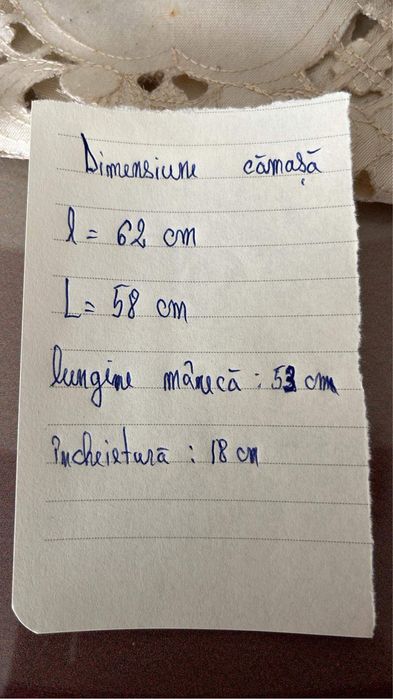 Dimensiune cămașă
l = 62 cm
L = 58 cm
lungime mânecă : 53 cm
încheietură : 18 cm